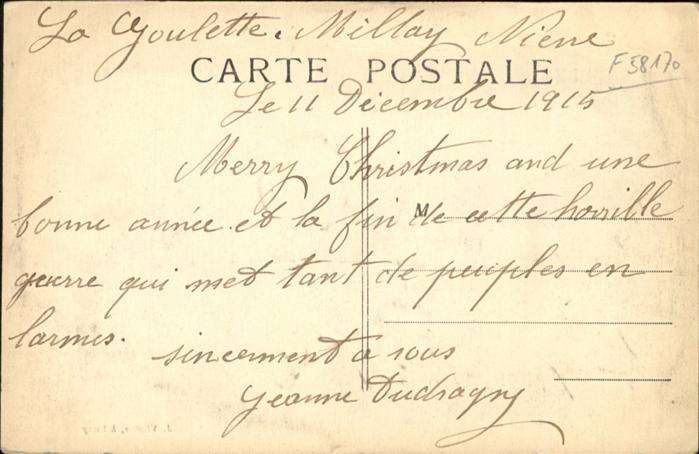 La Goulette. Millay Nievre
F 58170
CARTE POSTALE
Le 11 Décembre 1915
Merry Christmas and une
bonne année et la fin de cette horrible
M
guerre qui met tant de peuples en
larmes.
sincerment a vous
Jeanne Dudragny